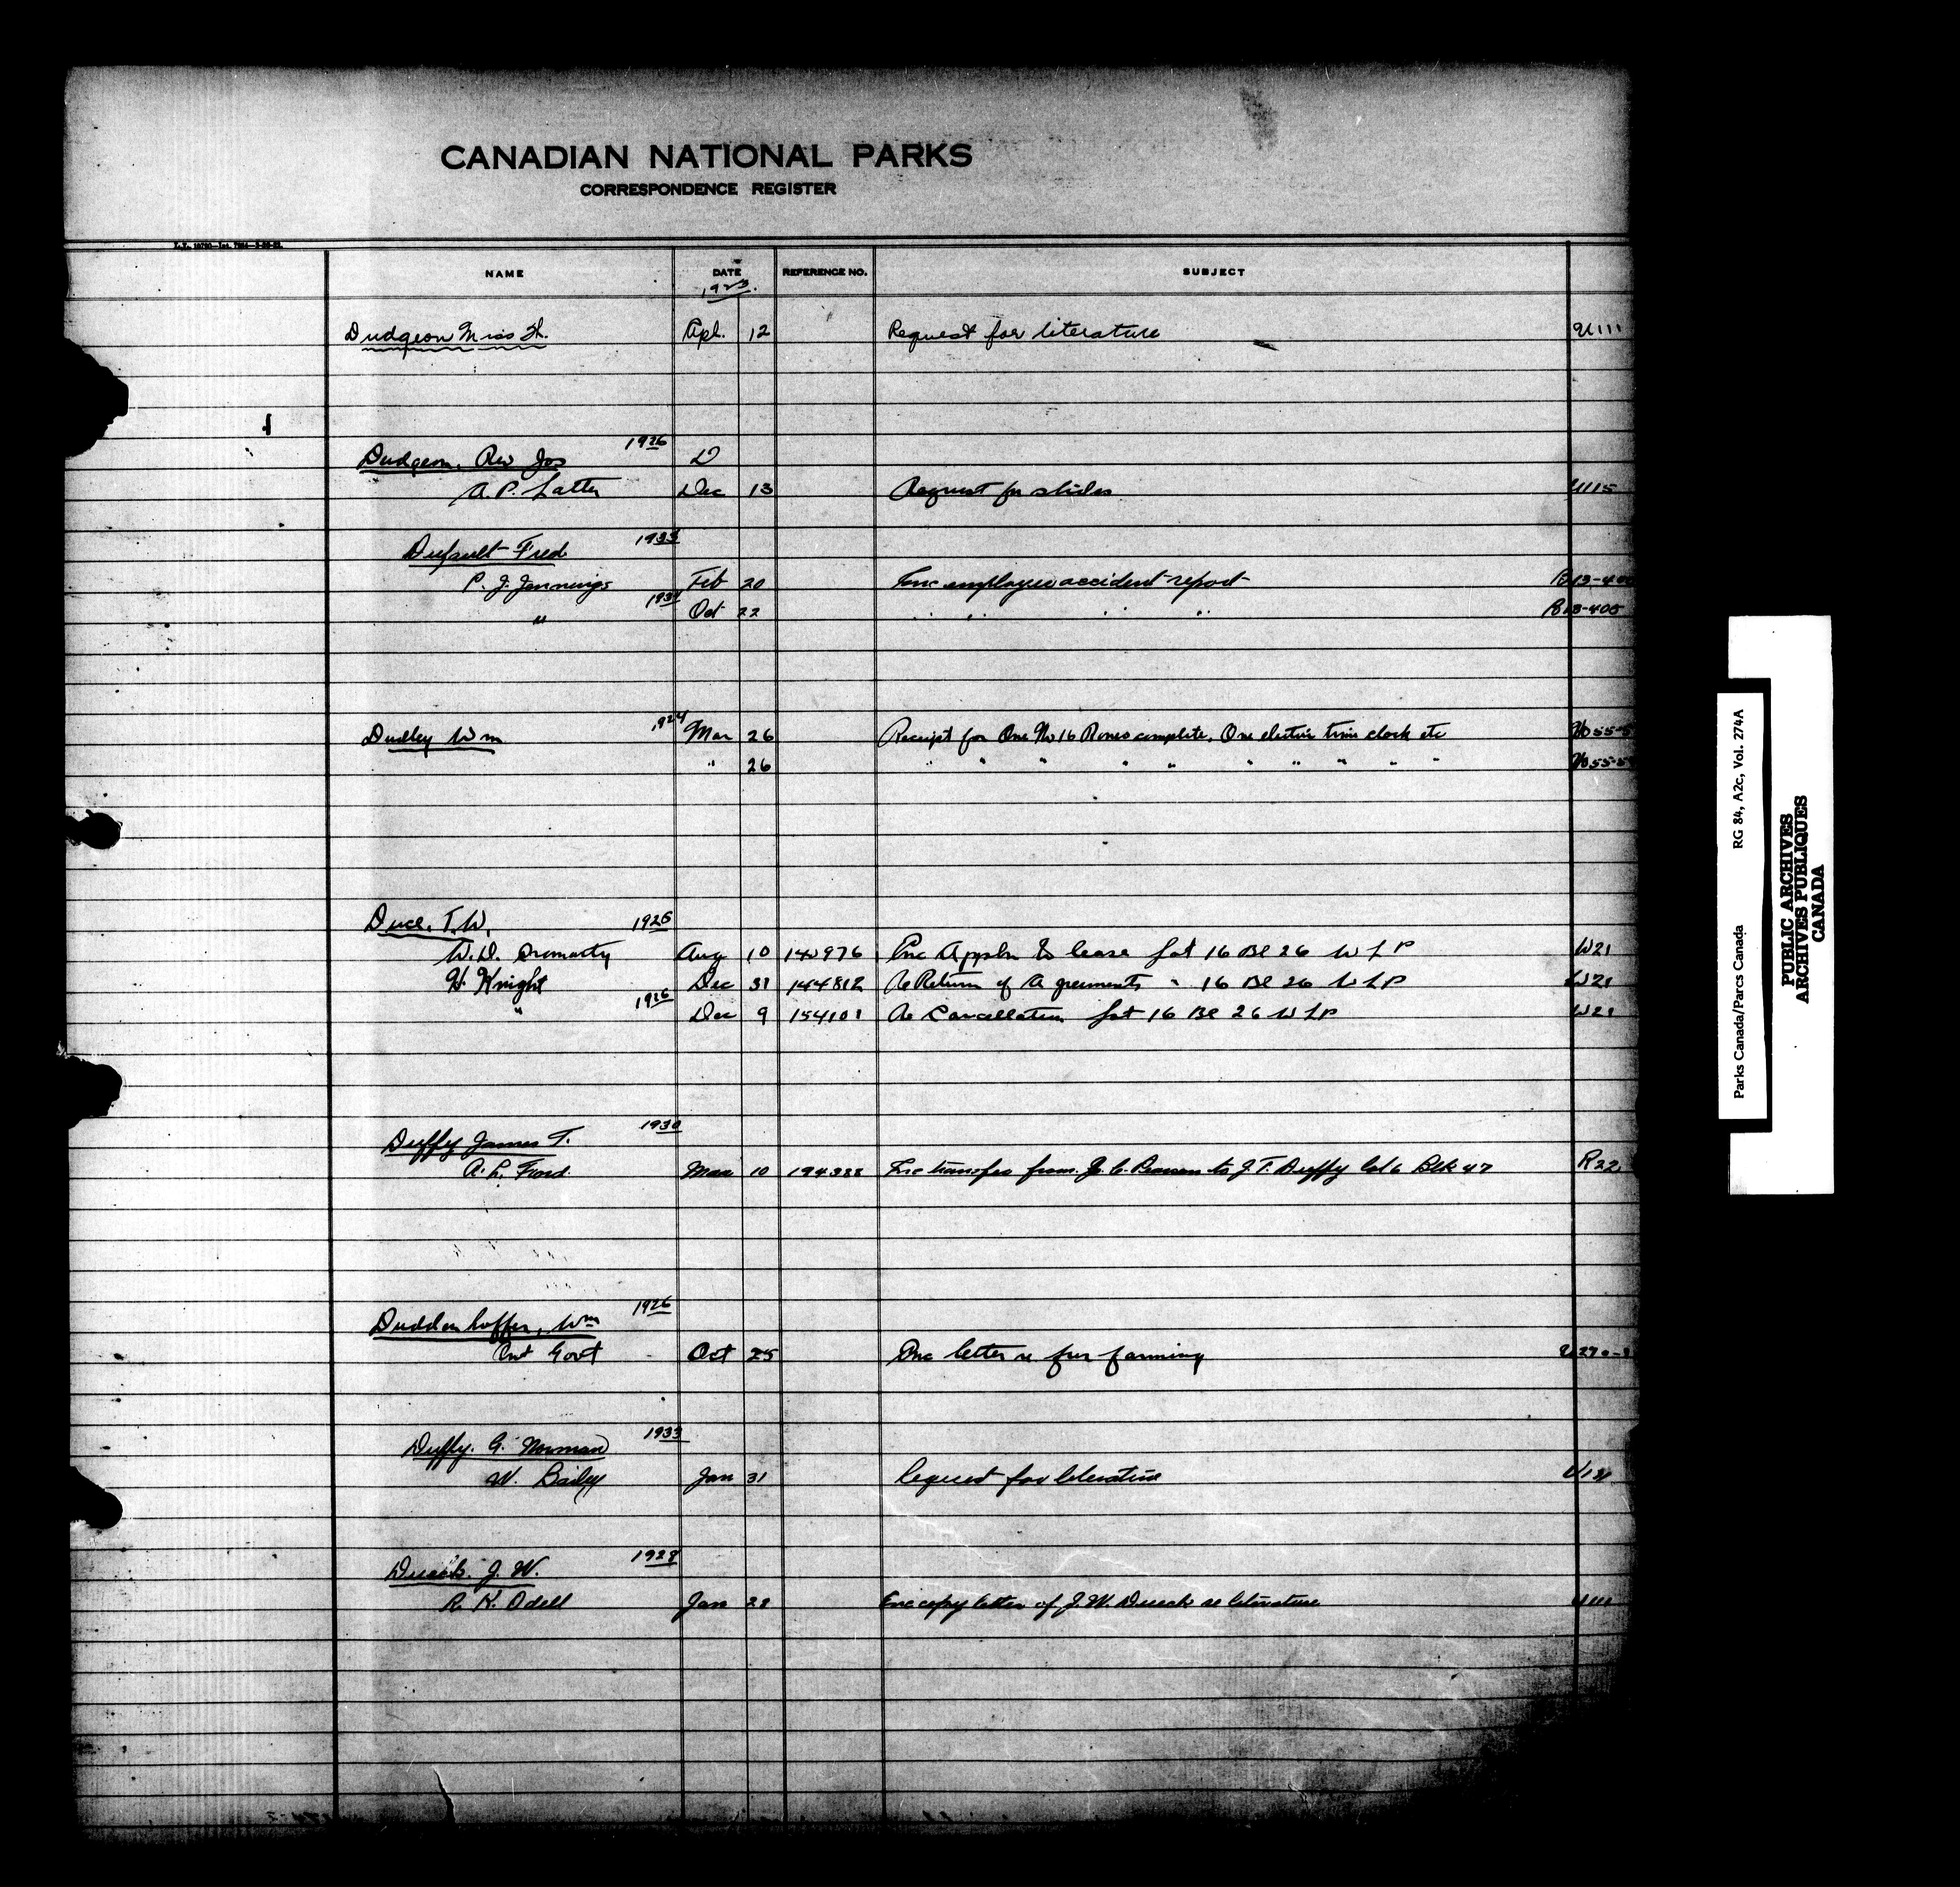 CANADIAN NATIONAL PARKS
CORRESPONDENCE REGISTER
NAME DATE REFERENCE NO. SUBJECT
1923.
Dudgeon Miss H. Apl. 12 Request for literature U111
Dudgeon, Rev Jos 1926 D
A. P. Latter Dec 13 Request for slides U115
Dufault Fred 1933
P. J. Jennings Feb 20 Enc employees accident report B13-400
" 1934 Oct 22 " " " " B13-405
Dudley Wm 1924 Mar 26 Receipt for One No 16 Roneo complete. One electric time clock etc 55-5
" 26 " " " " " " " " " " 55-5
Duce, T. W. 1925
W. D. Cromarty Aug 10 142976 Enc Appln to lease Lot 16 Bl 26 W L P W21
H. Knight Dec 31 144812 Re Return of Agreements " 16 Bl 26 W L P W21
" 1926 Dec 9 154101 Re Cancellation Lot 16 Bl 26 W L P W21
Duffy James T. 1930
A. L. Ford. Mar 10 194388 Enc transfer from J. C. Pearson to J. T. Duffy Lot 6 Blk 47 R22
Duddenhoffer, Wm 1926
Ont Govt Oct 25 Enc letter re fur farming U270-
Duffy. G. Norman 1933
W. Bailey Jan 31 Request for literature U131
Dueck. J. W. 1928
R. K. Odell Jan 28 Enc copy letter of J. W. Dueck re literature U111
Parks Canada/Parcs Canada RG 84, A2c, Vol. 274A
PUBLIC ARCHIVES
ARCHIVES PUBLIQUES
CANADA